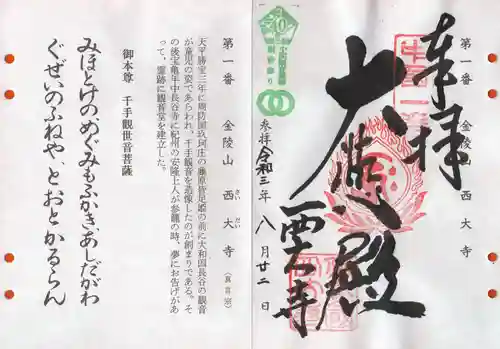 第一番 金陵山 西大寺
奉拝
大悲殿
西大寺
参拝令和三年 八月廿二日
第一番 金陵山 西大寺（真言宗）
さい だい じ
天平勝宝三年に周防国玖珂庄の藤原皆足姫の前に大和国長谷の観音
が童児の姿であらわれ、千手観音を造像したのが創まりである。そ
の後宝亀年中長谷寺に紀州の安隆上人が参籠の時、夢にお告げがあ
って、霊跡に観音堂を建立した。
御本尊 千手観世音菩薩
みほとけのめぐみもふかき、あしだがわ
ぐぜいのふねや、とおとかるらん